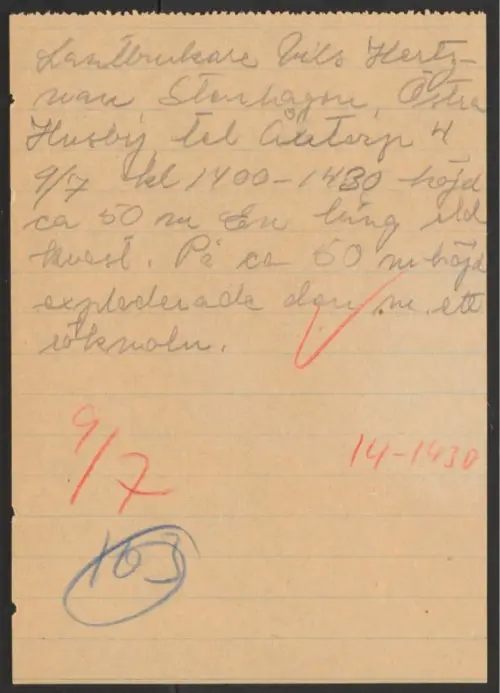 Lantbrukare Nils Hertz-
man Stenhagen, Östra
Husby, tel 4
9/7 kl 1400-1430 höjd
ca 50 m En lång eld
kvast. På ca 50 m höjd
exploderade den m. ett
rökmoln.
9/7
14-1430
103